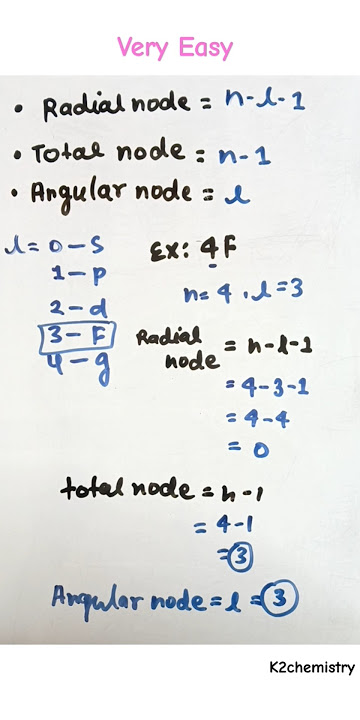 Very Easy
• Radial node = n-l-1
• Total node = n-1
• Angular node = l
l = 0 - S
1 - p
2 - d
3 - F
4 - g
Ex: 4F
n = 4, l = 3
Radial node = n-l-1
= 4-3-1
= 4-4
= 0
total node = n-1
= 4-1
= 3
Angular node = l = 3
K2chemistry